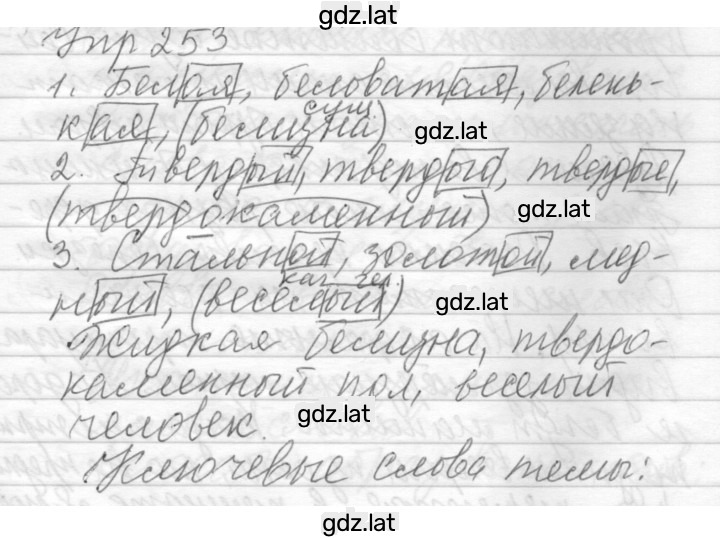 gdz.lat
Упр 253
1. Белая, беловатая, белень-
сущ.
кая, (белизна) gdz.lat
2. Твердый, твердого, твердые,
(твердокаменный) gdz.lat
3. Стальной, золотой, мед-
кач. чел.
ный, (веселый) gdz.lat
Жидкая белизна, твердо-
каменный пол, веселый
человек. gdz.lat
Ключевые слова темы:
gdz.lat